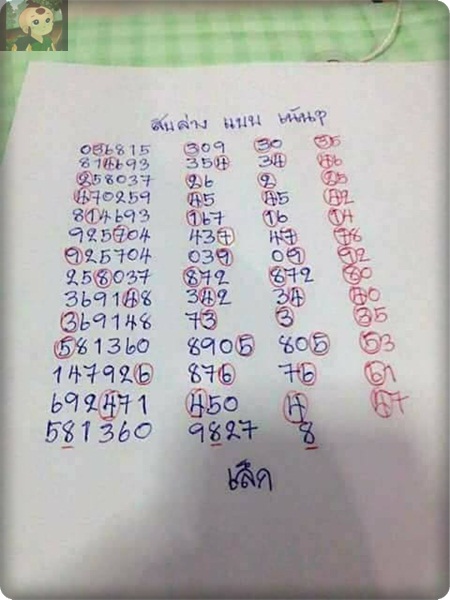 สบล่าง แบบ เน้นๆ
036815 309 30 35
814693 354 34 46
258037 26 2 25
470259 45 45 42
814693 167 16 14
925704 437 47 78
925704 039 09 92
258037 872 872 80
369148 342 34 40
369148 73 3 35
581360 8905 805 53
147926 876 76 61
692471 450 4 47
581360 9827 8